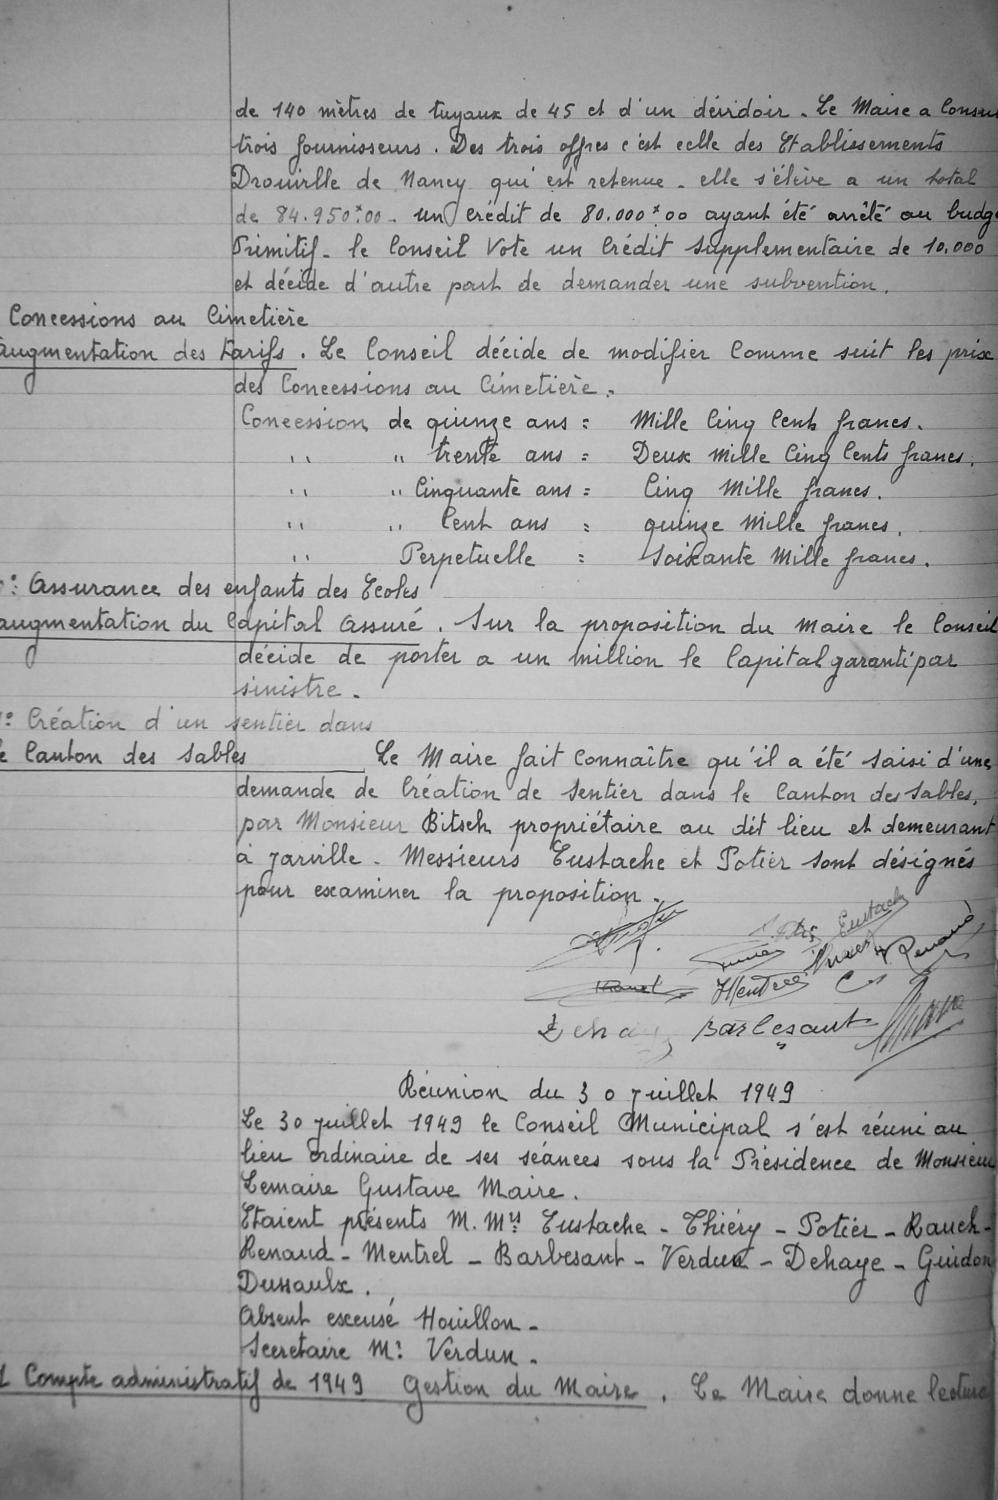 de 140 mètres de tuyaux de 45 et d'un dévidoir. Le Maire a Consu
trois fournisseurs. Des trois offres c'est celle des Etablissements
Drouville de Nancy qui est retenue. elle s'élève a un total
de 84.950 00. un crédit de 80.000 00 ayant été arrêté au budge
Primitif. le Conseil Vote un Crédit Supplementaire de 10.000
et décide d'autre part de demander une subvention.
Concessions au Cimetière
augmentation des tarifs. Le Conseil décide de modifier Comme suit les prix
des Concessions au Cimetière.
Concession de quinze ans = Mille Cinq Cents francs.
,, ,, trente ans = Deux Mille Cinq Cents francs.
,, ,, Cinquante ans = Cinq Mille francs.
,, ,, Cent ans = quinze Mille francs.
,, Perpetuelle = Soixante Mille francs.
°: Assurance des enfants des Ecoles
augmentation du Capital Assuré. Sur la proposition du Maire le Conseil
décide de porter a un million le Capital garanti par
sinistre.
°: Création d'un sentier dans
le Canton des Sables Le Maire fait Connaître qu'il a été saisi d'une
demande de Création de Sentier dans le Canton des Sables,
par Monsieur Bitsch propriétaire au dit lieu et demeurant
à Jarville. Messieurs Eustache et Potier sont désignés
pour examiner la proposition.
Eustache
Renaud
Mentrel
Dehaye Barbesant
Réunion du 30 Juillet 1949
Le 30 Juillet 1949 le Conseil Municipal s'est réuni au
lieu ordinaire de ses séances sous la Présidence de Monsieur
Lemaire Gustave Maire.
Etaient présents M.Mrs Eustache - Thiéry - Potier - Rauch -
Renaud - Mentrel - Barbesant - Verdun - Dehaye - Guidon
Dussaulx.
Absent excusé Houillon -
Secretaire Mr Verdun -
1 Compte administratif de 1949 Gestion du Maire. Le Maire donne lecture